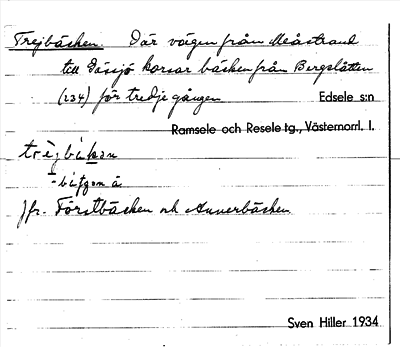 Trejbäcken. Där vägen från Meåstrand
till Gåssjö korsar bäcken från Bergslåtten
(234) för tredje gången Edsele s:n
Ramsele och Resele tg., Västernorrl. l.
jfr. Förstbäcken och Annerbäcken
Sven Hiller 1934